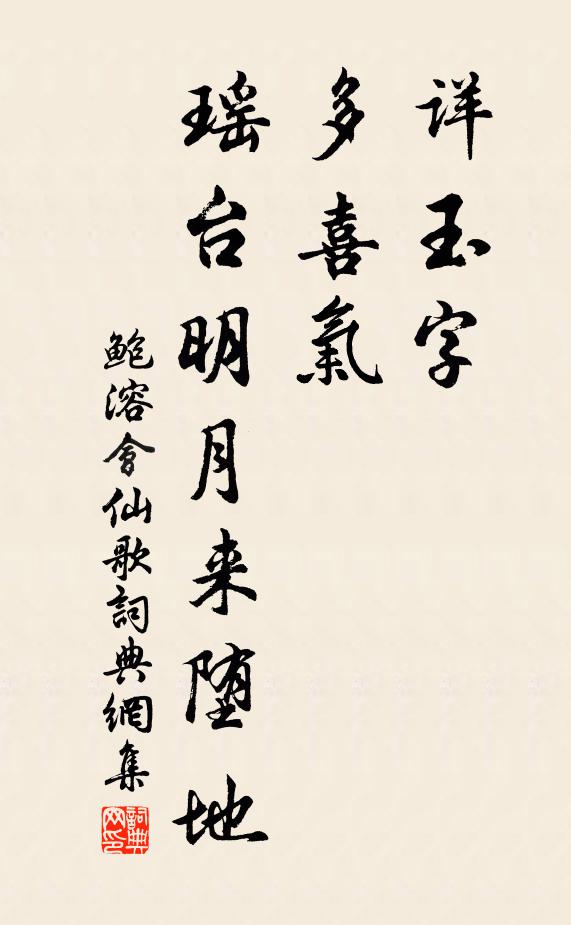 详玉字
多喜氣
瑶台明月来堕地
鲍溶會仙歌詞典網集